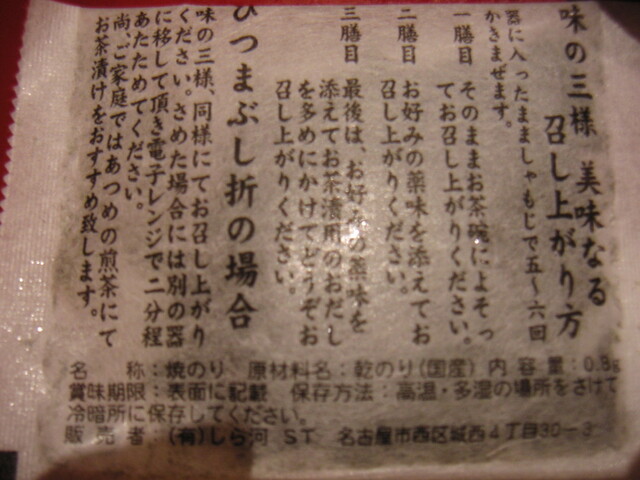 味の三様 美味なる
召し上がり方
器に入ったまましゃもじで五〜六回
かきまぜます。
一膳目 そのままお茶碗によそっ
てお召し上がりください。
二膳目 お好みの薬味を添えてお
召し上がりください。
三膳目 最後は、お好みの薬味を
添えてお茶漬用のおだし
を多めにかけてどうぞお
召し上がりください。
ひつまぶし折の場合
味の三様、同様にてお召し上がり
ください。さめた場合には別の器
に移して頂き電子レンジで二分程
あたためてください。
尚、ご家庭ではあつめの煎茶にて
お茶漬けをおすすめ致します。
名称：焼のり 原材料名：乾のり(国産) 内容量：0.8g
賞味期限：表面に記載 保存方法：高温・多湿の場所をさけて
冷暗所に保存してください。
販売者：(有)しら河 ST 名古屋市西区城西4丁目30-3